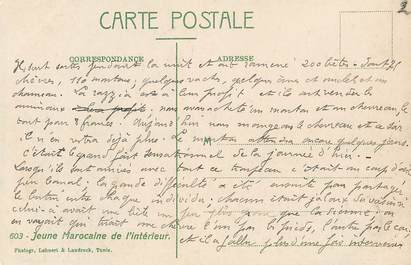 CARTE POSTALE
2
CORRESPONDANCE
ADRESSE
Ils sont sortis pendant la nuit et ont ramené 200 bêtes. Dont 25
chèvres, 110 moutons, quelques vaches, quelques ânes et mulet et un
chameau. La razzia est à leur profit et ils ont vendu les
animaux nous avons acheté un mouton et un chevreau, le
tout pour 8 francs. Aujourd'hui nous mangeons le chevreau et ce soir
il n'en restera déjà plus. Le mouton attendra encore quelques jours.
C'était le grand fait sensationnel de la journée d'hier.
Lorsqu'ils sont arrivés avec tout ce troupeau c'était un coup d'œil
peu banal. La grande difficulté a été ensuite pour partager
le butin entre chaque individu. chacun était jaloux
celui-ci avait une bête un peu plus grosse que la sienne
on voyait qui tirait une chèvre l'un par les pieds, l'autre par le cou
et il a fallu plus d'une fois intervenir
603 - Jeune Marocaine de l'intérieur.
Photogr. Lehnert & Landrock, Tunis.